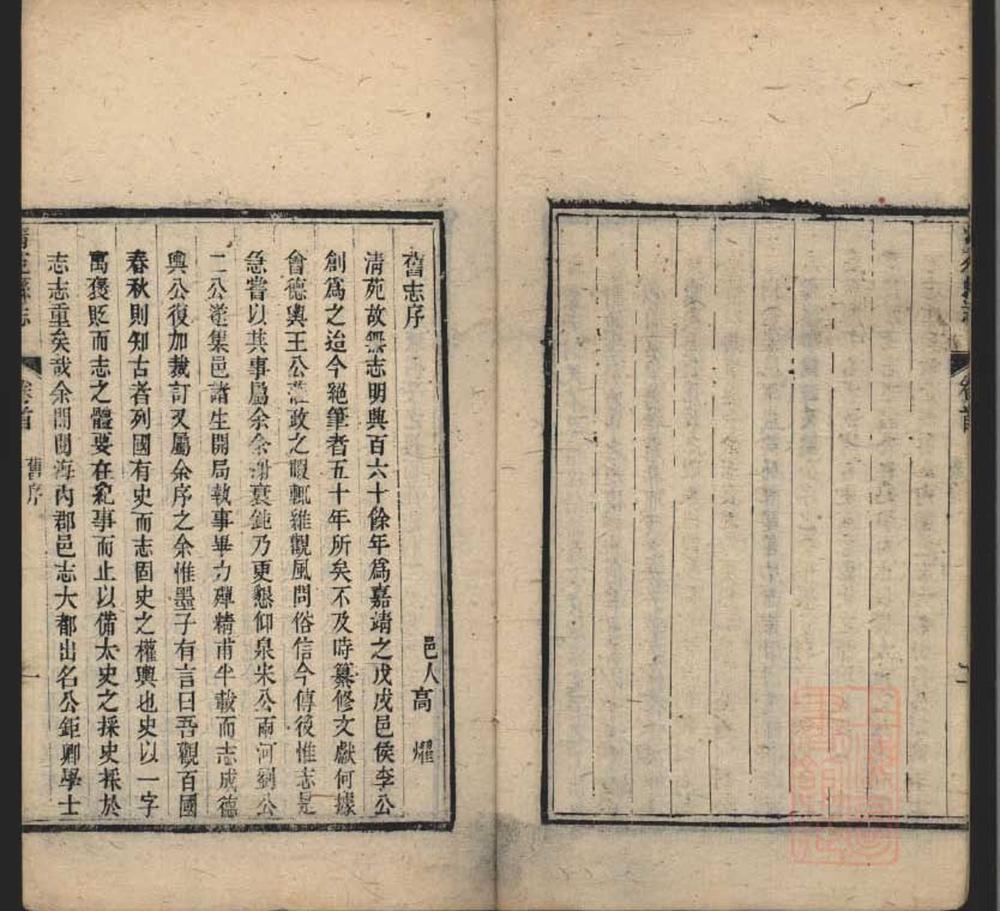 舊志序
邑人高 燿
清苑故無志明興百六十餘年爲嘉靖之戊戌邑侯李公
創爲之迨今絕筆者五十年所矣不及時纂修文獻何據
會德輿王公蒞政之暇輒雅觀風問俗信今傳後惟志是
急嘗以其事屬余余謝衰鈍乃更懇仰泉宋公兩河劉公
二公遂集邑諸生開局執事畢力殫精甫半載而志成德
輿公復加裁訂又屬余序之余惟墨子有言曰吾觀百國
春秋則知古者列國有史而志固史之權輿也史以一字
寓褒貶而志之體要在紀事而止以備太史之採史採於
志志重矣哉余間閱海內郡邑志大都出名公鉅卿學士
清苑縣志
卷首
舊序
一